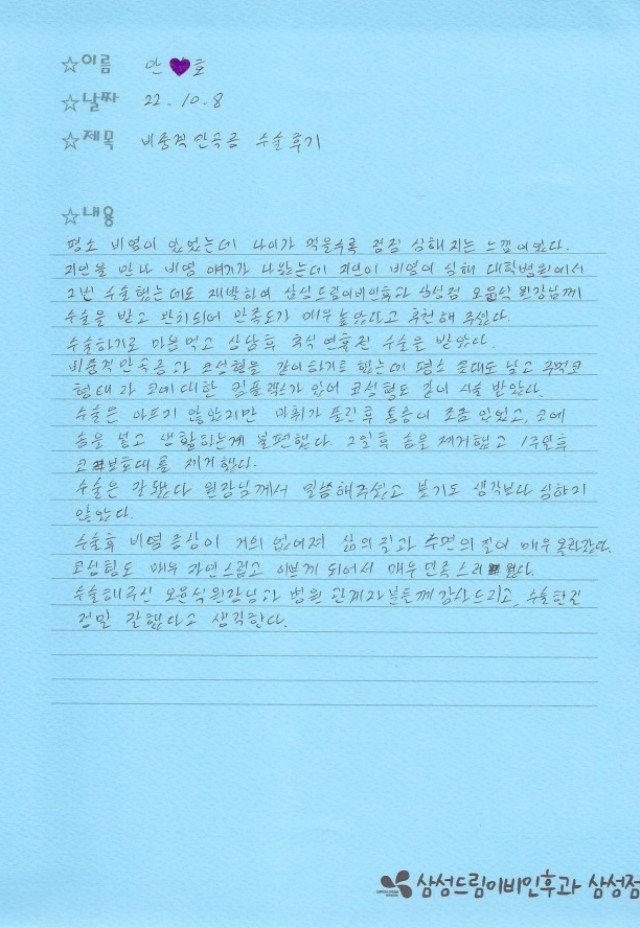 ☆이름 안♥호
☆날짜 22. 10. 8
☆제목 비중격만곡증 수술후기
☆내용
평소 비염이 있었는데 나이가 먹을수록 점점 심해지는 느낌이었다.
지인을 만나 비염 얘기가 나왔는데 지인이 비염이 심해 대학병원에서
2번 수술했는데도 재발하여 삼성드림이비인후과 삼성점 오윤식 원장님께
수술을 받고 완치되어 만족도가 매우 높았다고 추천해 주셨다.
수술하기로 마음먹고 상담후 즉시 연휴전 수술을 받았다.
비중격만곡증과 코성형을 같이하기로 했는데 평소 콧대도 낮고 주먹코
형태라 코에 대한 컴플렉스가 있어 코성형도 같이 시술 받았다.
수술은 아프지 않았지만 마취가 풀린후 통증이 조금 있었고, 코에
솜을 넣고 생활하는게 불편했다. 2일후 솜을 제거했고 1주일후
코보호대를 제거했다.
수술은 잘됐다 원장님께서 말씀해주셨고 붓기도 생각보다 심하지
않았다.
수술후 비염 증상이 거의 없어져 삶의질과 수면의 질이 매우 올라갔다.
코성형도 매우 자연스럽고 이쁘게 되어서 매우 만족스러웠다.
수술해주신 오윤식원장님과 병원 관계자분들께 감사드리고, 수술한건
정말 잘했다고 생각한다.
삼성드림이비인후과 삼성점